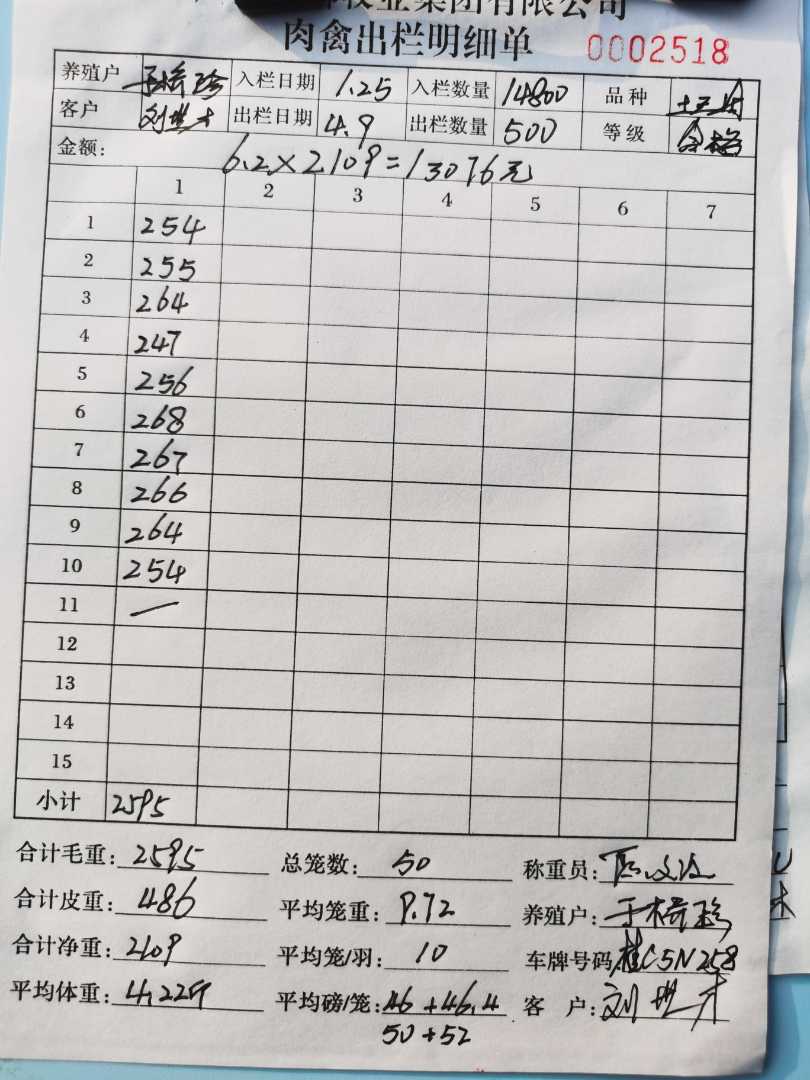 牧业集团有限公司
肉禽出栏明细单 0002518
养殖户 于格珍 入栏日期 1.25 入栏数量 14800 品种
客户 刘世才 出栏日期 4.9 出栏数量 500 等级 合格
金额: 6.2×2109=13076元
1 2 3 4 5 6 7
1 254
2 255
3 264
4 247
5 256
6 268
7 267
8 266
9 264
10 254
11 —
12
13
14
15
小计 2595
合计毛重: 2595 总笼数: 50 称重员:
合计皮重: 486 平均笼重: 9.72 养殖户: 于格珍
合计净重: 2109 平均笼/羽: 10 车牌号码 桂C5N258
平均体重: 4.22斤 平均磅/笼: 46+46.4 客 户: 刘世才
50+52